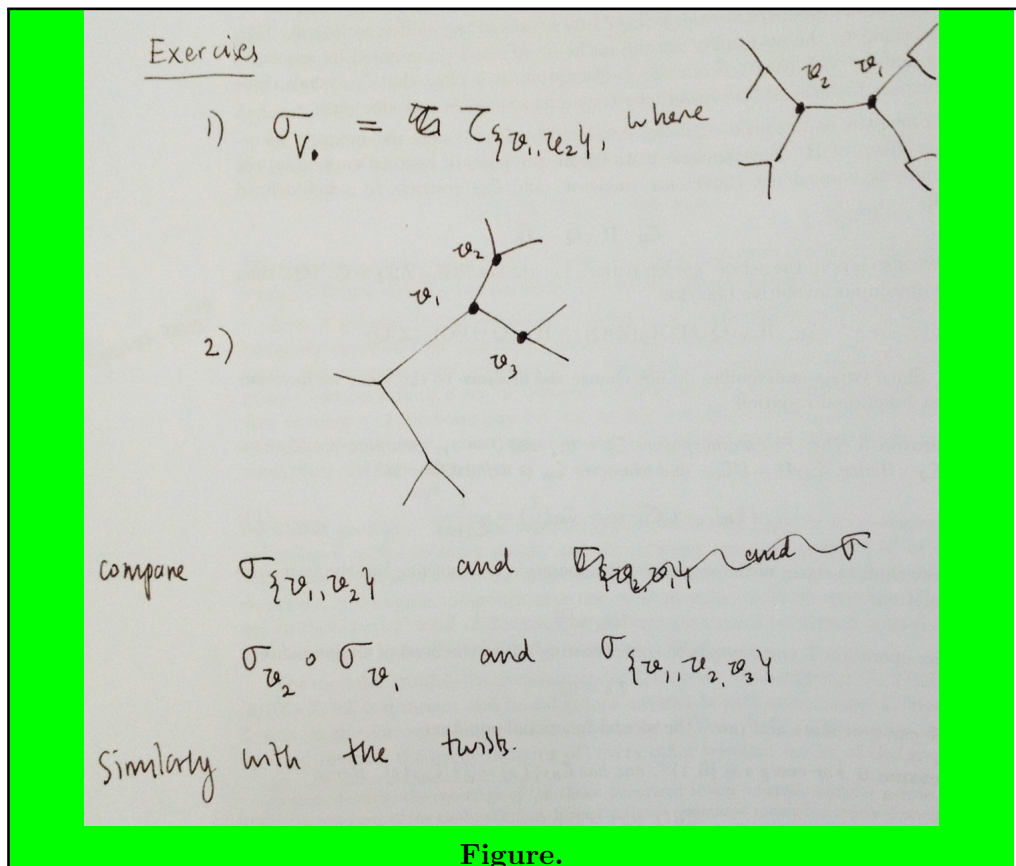 Exercises
1) σ_{v₁} = τ_{{v₁, v₂}}, where
v₂ v₁
v₂
v₁
2)
v₃
compare σ_{{v₁, v₂}} and
σ_{v₂} ∘ σ_{v₁} and σ_{{v₁, v₂, v₃}}
Similarly with the twists.
Figure.